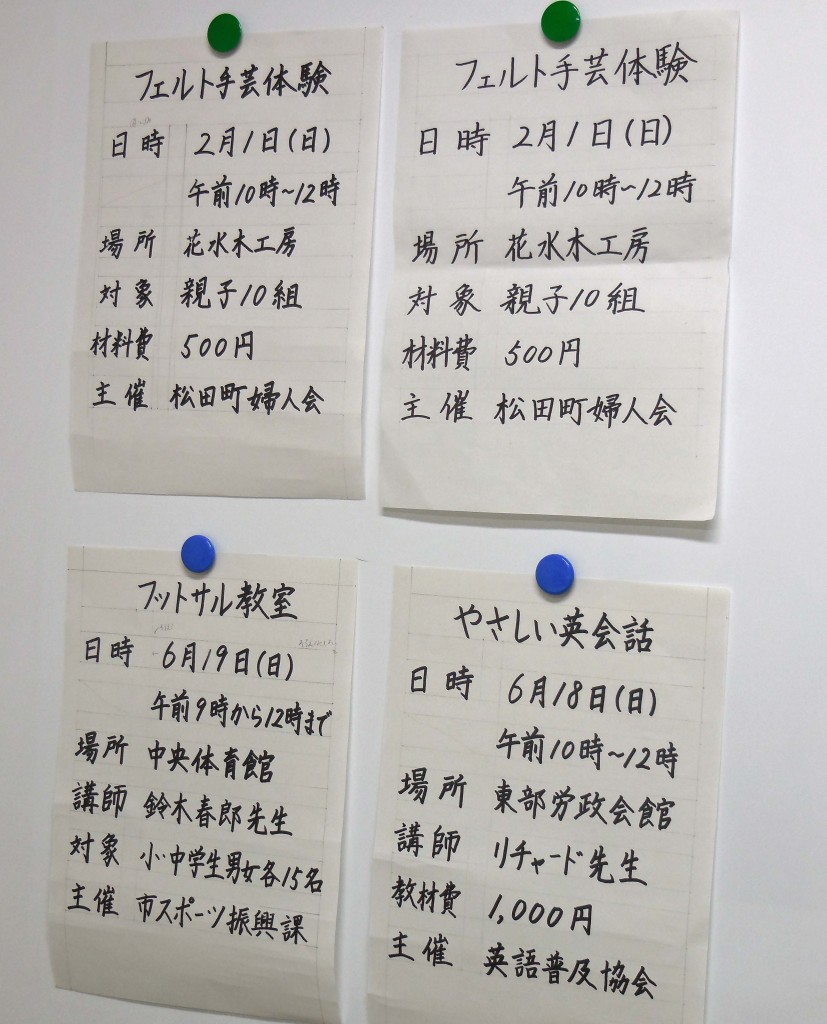 フェルト手芸体験
日時 2月1日(日)
午前10時~12時
場所 花水木工房
対象 親子10組
材料費 500円
主催 松田町婦人会
フェルト手芸体験
日時 2月1日(日)
午前10時~12時
場所 花水木工房
対象 親子10組
材料費 500円
主催 松田町婦人会
フットサル教室
日時 6月19日(日)
午前9時から12時まで
場所 中央体育館
講師 鈴木春郎先生
対象 小・中学生男女各15名
主催 市スポーツ振興課
やさしい英会話
日時 6月18日(日)
午前10時~12時
場所 東部労政会館
講師 リチャード先生
教材費 1,000円
主催 英語普及協会